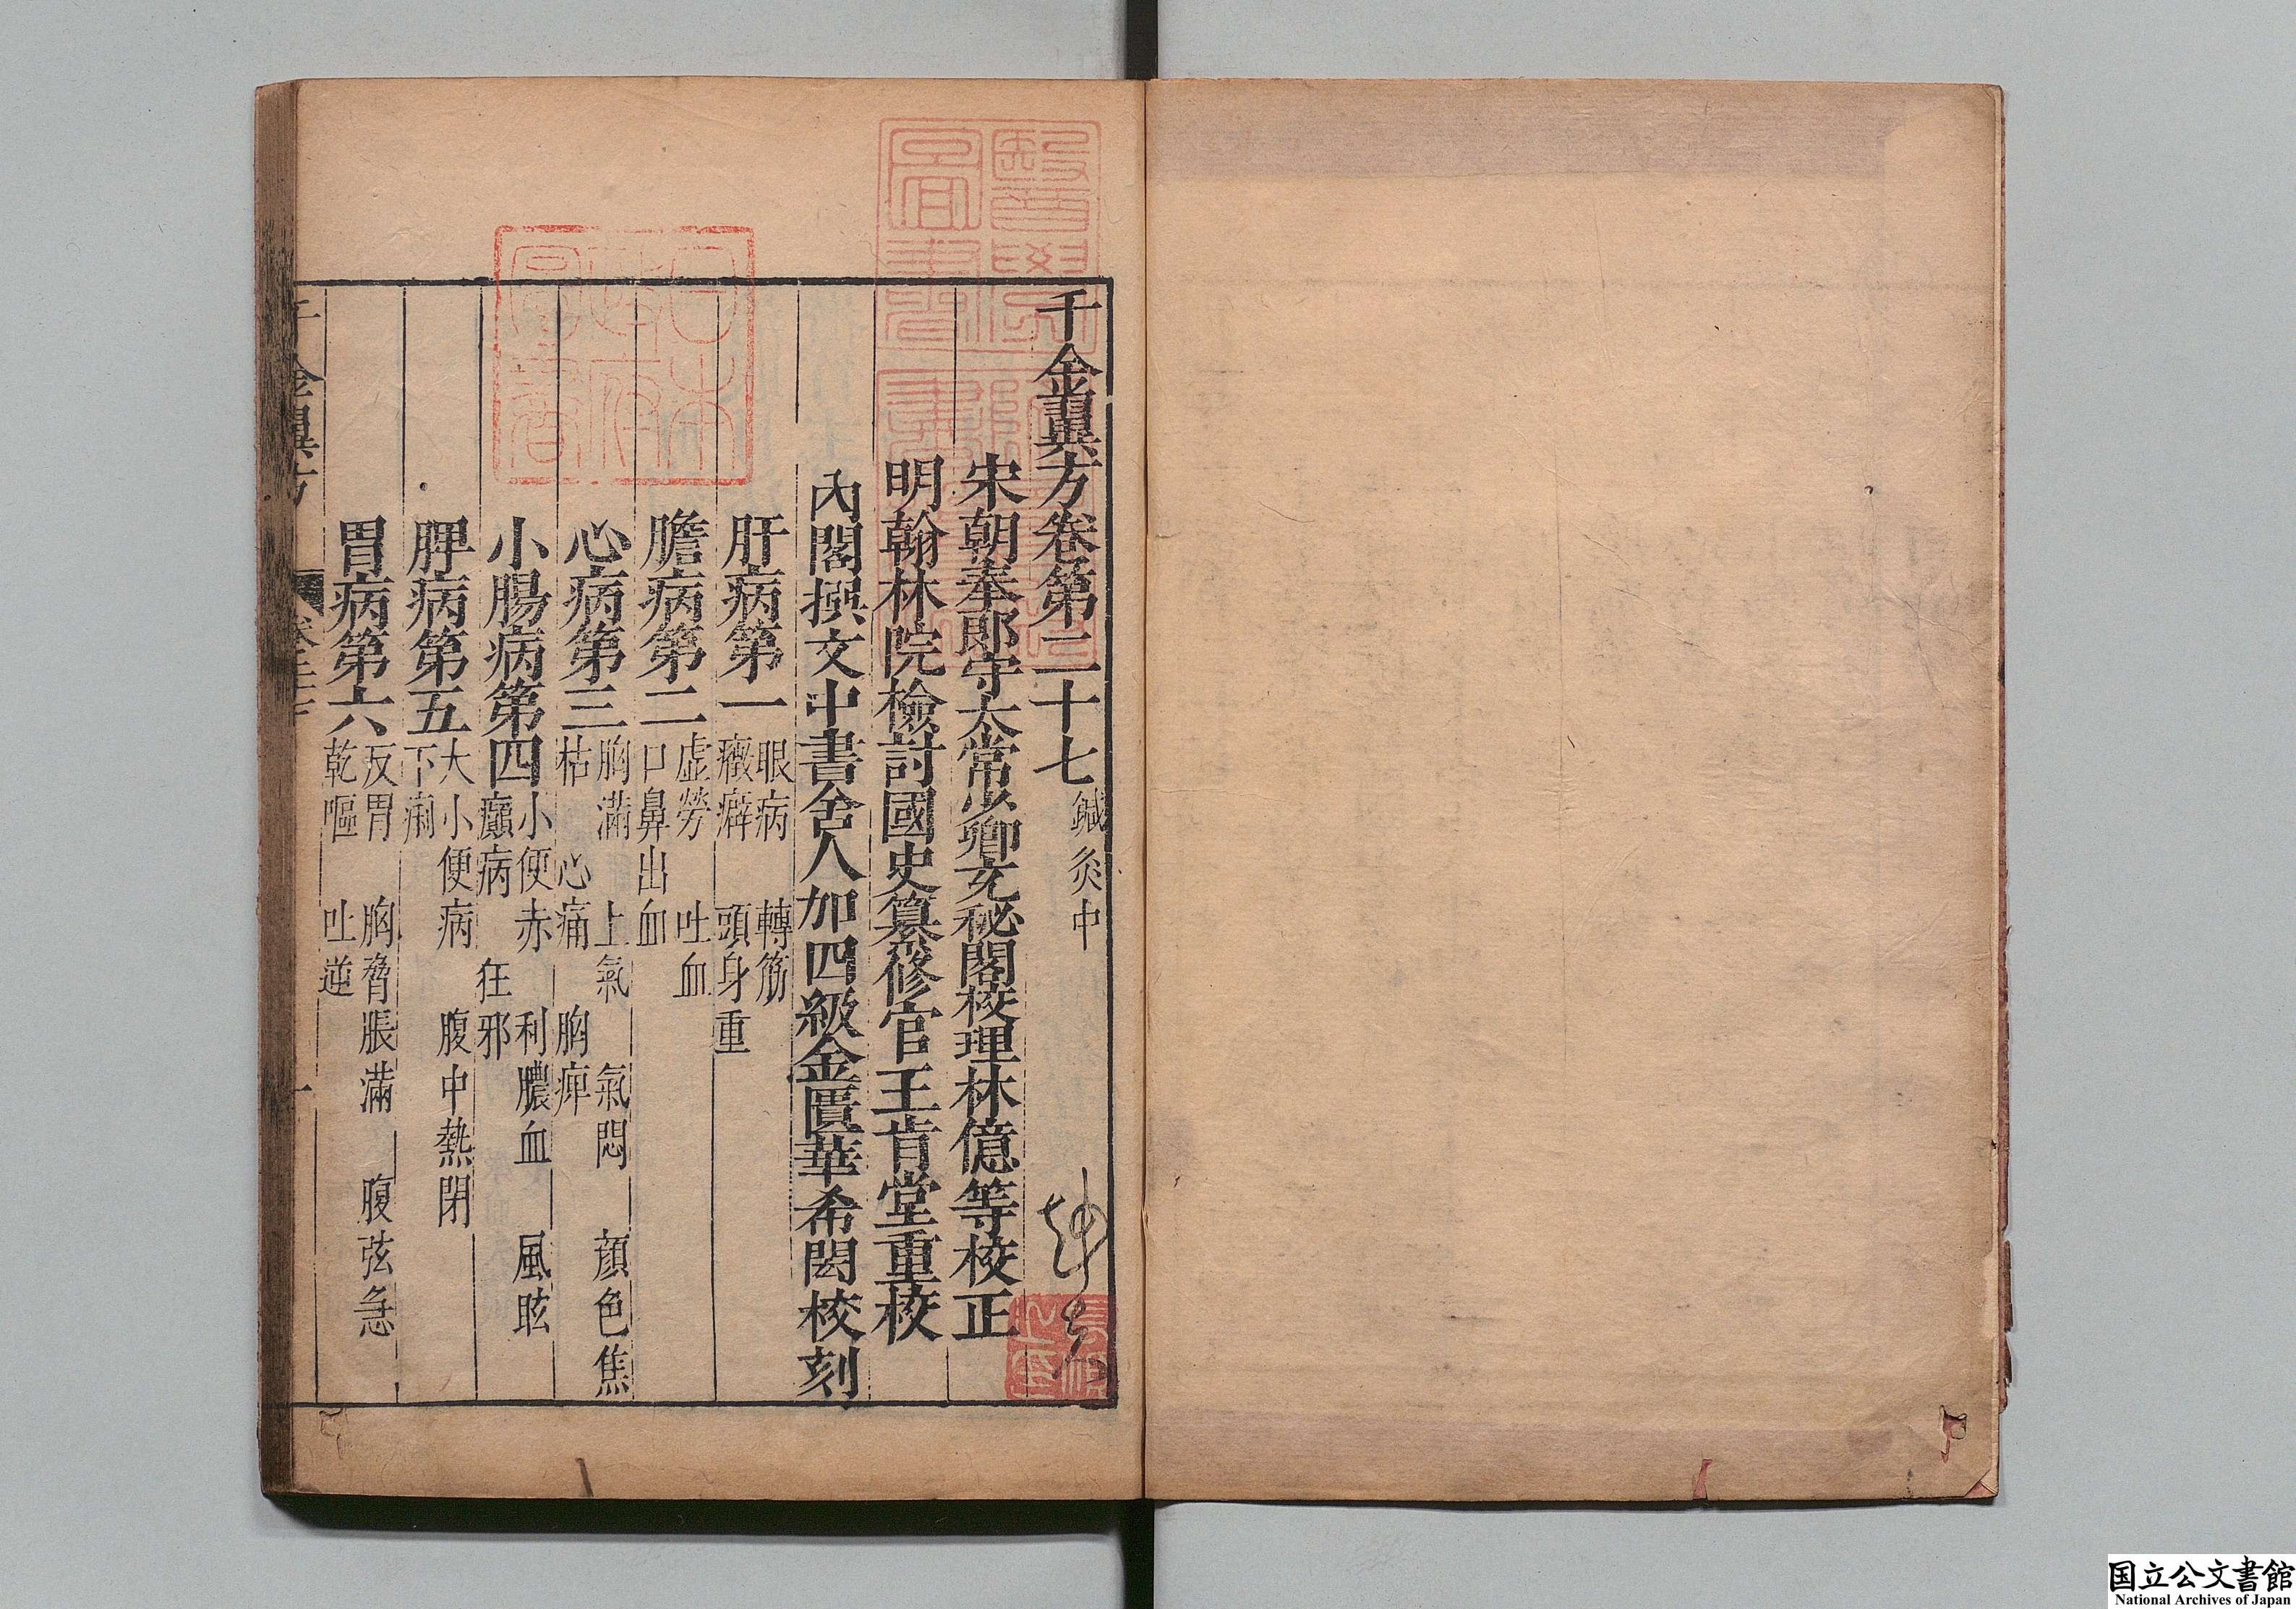 千金翼方卷第二十七 鍼灸中
宋朝奉郎守太常少卿充秘閣校理林億等校正
明翰林院檢討國史纂修官王肯堂重校
內閣撰文中書舍人加四級金匱華希閎校刻
肝病第一 眼病 轉筋
癥癖 頭身重
膽病第二 虛勞 吐血
口鼻出血
心病第三 胸滿 上氣 氣悶 顏色焦
枯 心痛 胸痺
小腸病第四 小便赤 利膿血 風眩
癲病 狂邪
脾病第五 大小便病 腹中熱閉
下痢
胃病第六 反胃 胸脅脹滿 腹弦急
乾嘔 吐逆
千金翼方 卷二十七 一
醫學圖書
日本政府圖書
国立公文書館
National Archives of Japan